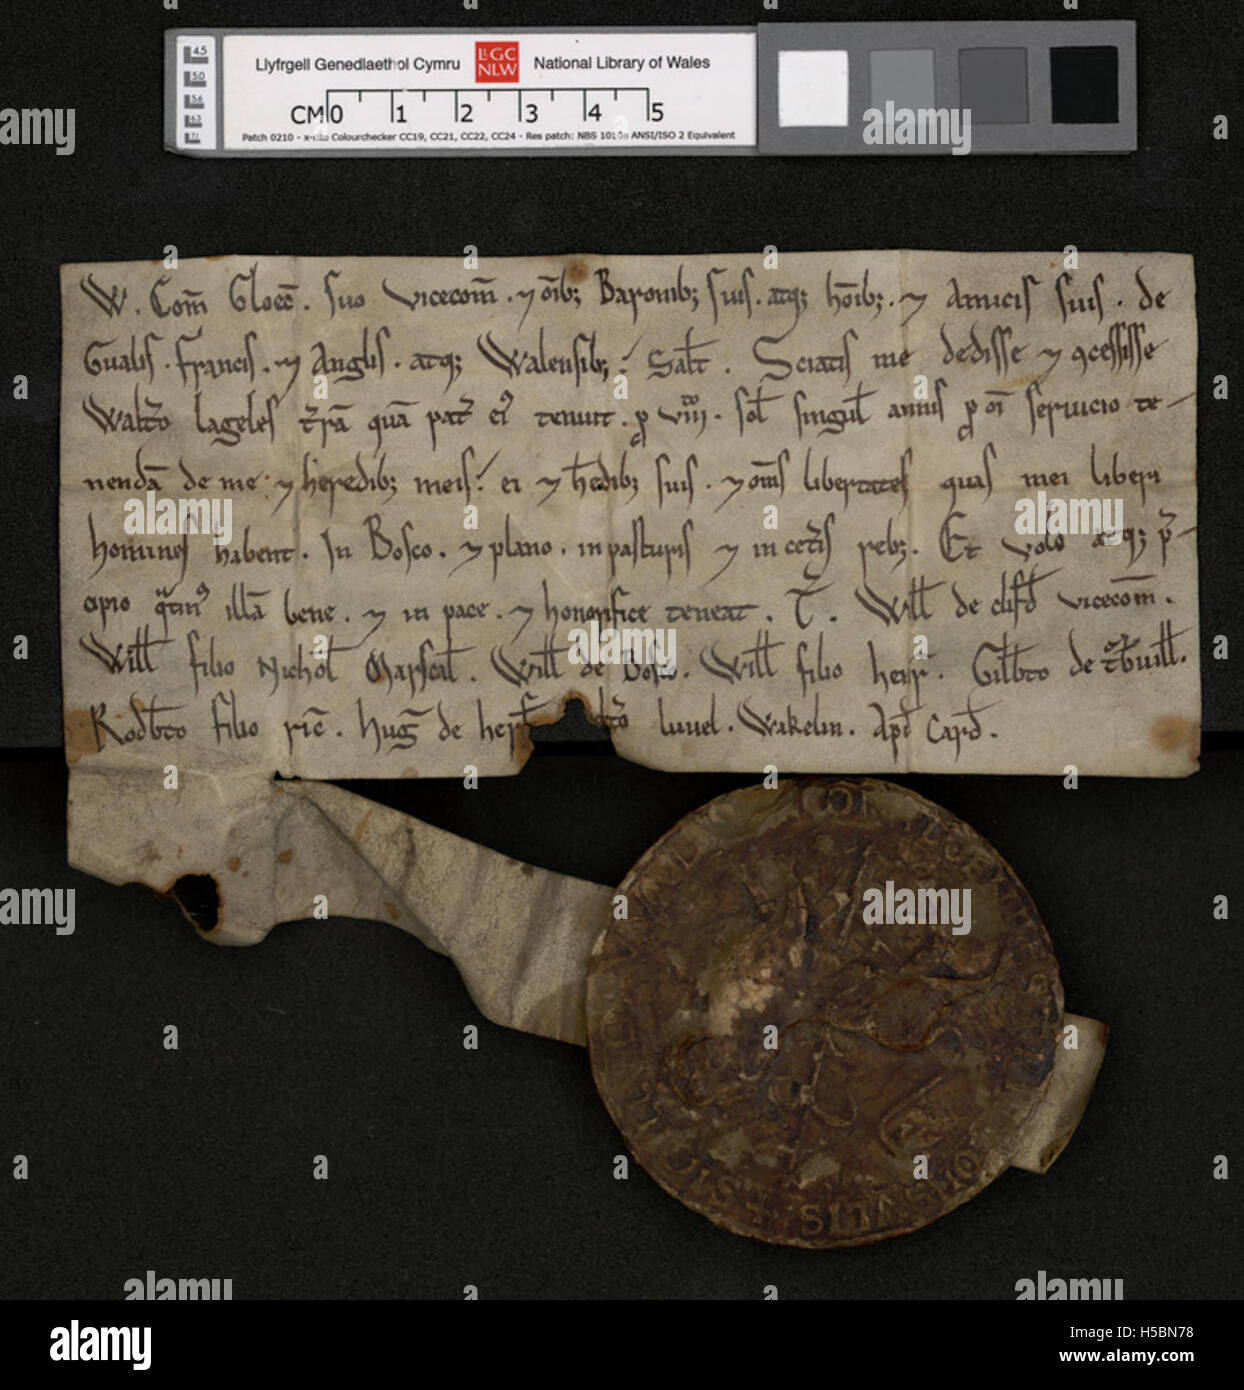 Llyfrgell Genedlaethol Cymru LLGC NLW National Library of Wales
CM 0 1 2 3 4 5
Patch 0210 - x-rite Colourchecker CC19, CC21, CC22, CC24 - Res patch: NBS 1010a ANSI/ISO 2 Equivalent
4.5
5.0
5.6
6.3
7.1
W. Com̄ Gloec̄. suo vicecom̄. ⁊ om̄ib; Baronib; suis. atq; hōib;. ⁊ Amicis suis. de
Gualis. francis. ⁊ Anglis. atq; Walensib; Salt̄. Sciatis me dedisse ⁊ ꝯcessisse
Walt̄o lageles t̄rā quā pat̄ ei᾽ tenuit. ꝓ viii. sol̄ singul̄ annis ꝓ oī seruicio te-
nendā de me ⁊ heredib; meis. ei ⁊ h̄edib; suis. ⁊ om̄s libertates quas mei liberi
homines habent. In Bosco. ⁊ plano. in pasturis ⁊ in cet̄is reb;. Et volo atq; p̄-
cipio illā bene. ⁊ in pace. ⁊ honorifice teneat. T̄. Will̄ de clif̄d vicecom̄.
Will̄ filio Nichol̄ Marscal̄. Will̄ de Bosco. Will̄ filio henr̄. Gil̄bto de
Rodb̄to filio ric̄. huḡ de luuel. Wakelin. Ap̄d Card̄.
alamy
alamy
www.alamy.com
H5BN78